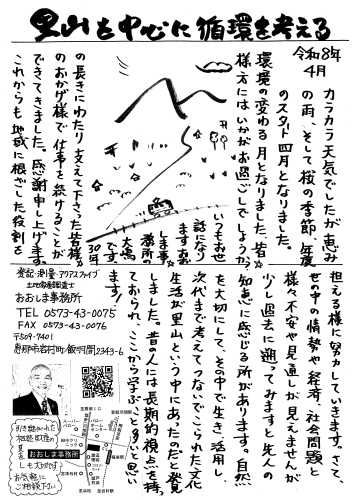 里山を中心に循環を考える
令和8年
4月
カラカラ天気でしたが恵み
の雨、そして桜の季節、年度
のスタート四月となりました。
環境の変わる月となりました。皆
様方にはいかがお過ごしでしょうか?
いつもお世
話になり
ます。おお
しま事
務所の
大嶋
です。
30年
の長きにわたり支えて下さった皆様
のおかげ様で仕事を続けることが
できてきました。感謝申し上げます。
これからも地域に根ざした役割を
担える様に努力していきます。さて、
世の中の情勢や経済、社会問題と
様々不安や見通しが見えませんが
少し過去に遡ってみますと先人の
知恵に感じる所があります。自然
を大切にして、その中で生き、活用し
次代まで考えてつないでこられた文化
生活が里山という中にあったのだと発見
しました。昔の人には長期的視点を持っ
ておられ、ここから学ぶこと多いと思い
ます!
登記・測量・アクアスファイブ
土地家屋調査士
おおしま事務所
TEL 0573-43-0075
FAX 0573-43-0076
〒509-7401
恵那市岩村町飯羽間2343-6
おおしま事務所
お気軽に
ご相談下さい